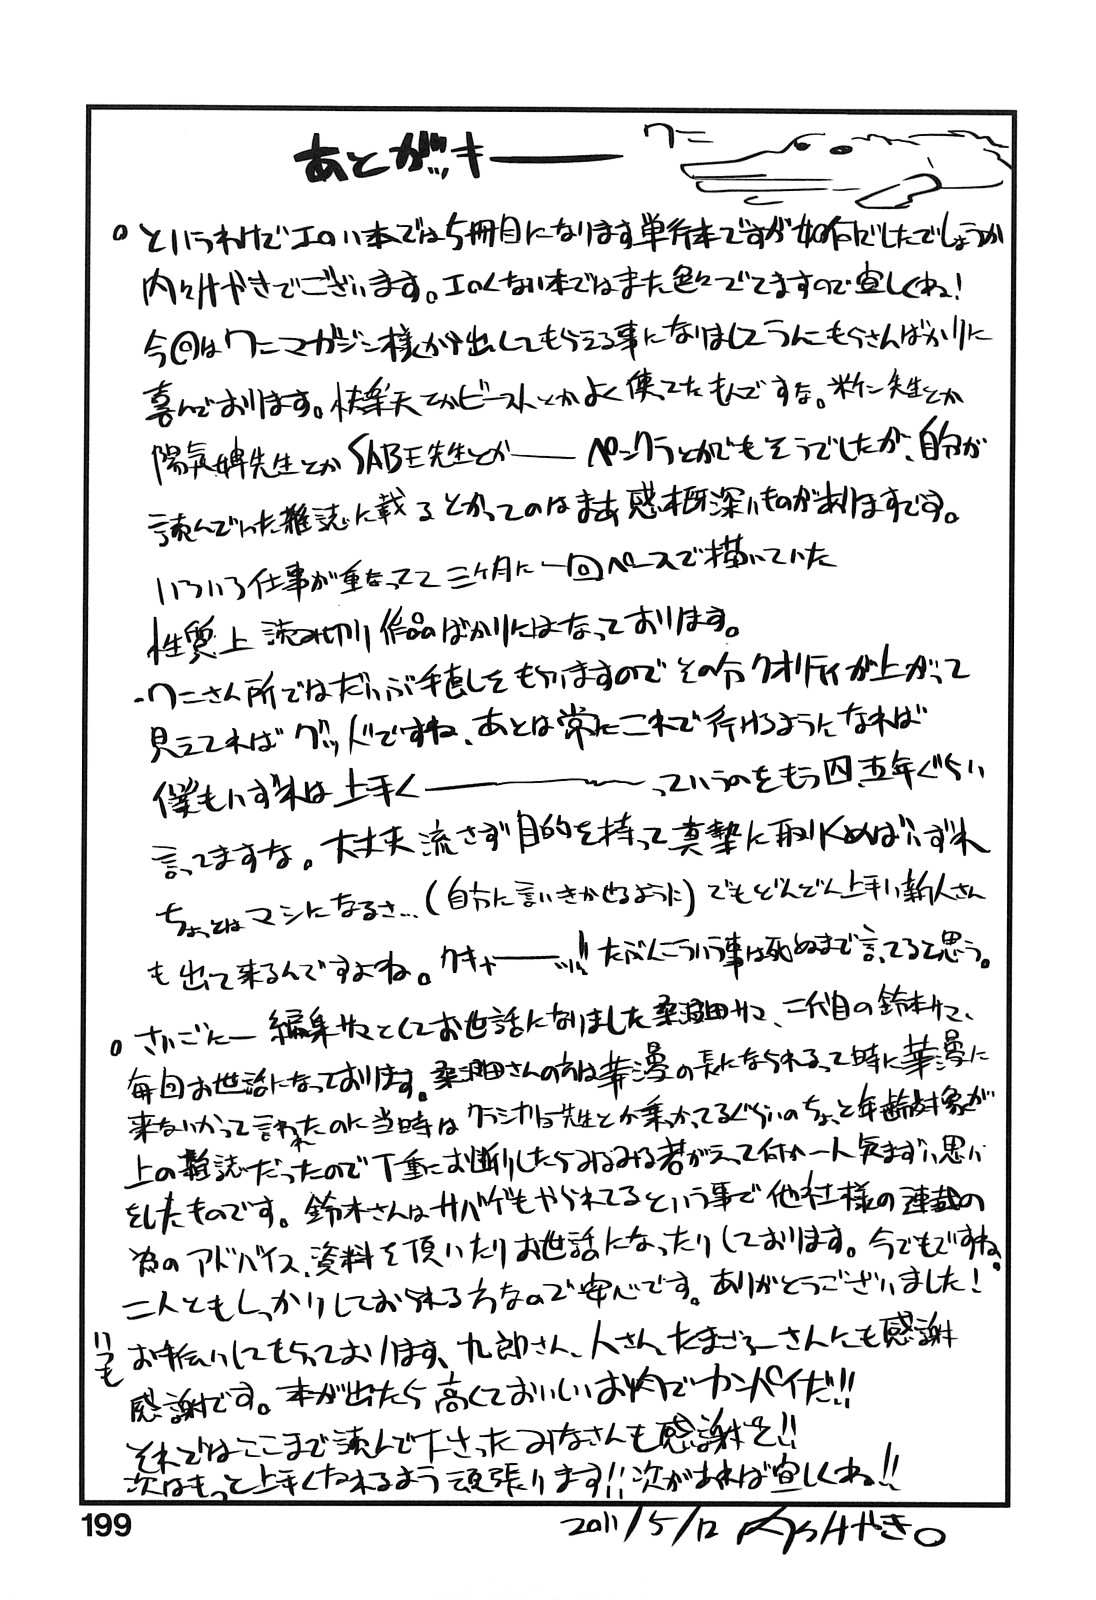 あとがッキ━━
ワニ
。というわけでエロい本では5冊目になります単行本ですが如何でしたでしょうか
内々けやきでございます。エロくない本ではまた色々でてますので宜しくね!
今回はワニマガジン様から出してもらえる事になりましてうんこもらさんばかりに
喜んでおります。快楽天とかビーストとかよく使ってたもんですな。米仁先生とか
陽気婢先生とかSABE先生とか── ペンクラとかでもそうでしたが、自分が
読んでいた雑誌に載るとかってのはまあ感慨深いものがありますです。
いろいろ仕事が重なってて三ケ月に一回ペースで描いていた
性質上読み切り作品ばかりにはなっております。
・ワニさん所ではだいぶ手直しをもらいますのでその分クオリティが上がって
見えてればグッドですね、あとは常にこれで行けるようになれば
僕もいずれは上手く────っていうのをもう四、五年ぐらい
言ってますな。大丈夫 流さず目的を持って真摯に取り組めばいずれ
ちょっとはマシになるさ…(自分に言いきかせるように)でもどんどん上手い新人さん
も出て来るんですよね。クキャーーッ!!たぶんこういう事は死ぬまで言ってると思う。
。さいごにー 編集サマとしてお世話になりました桑田サマ、二代目の鈴木サマ、
毎回お世話になっております。桑田さんの方は華漫の長になられるって時に華漫に
来ないかって言われたのに当時はクラシカル先生とか乗ってるぐらいのちょっと年齢対象が
上の雑誌だったので丁重にお断りしたらみるみる若がえって何か一人気まずい思い
をしたものです。鈴木さんはサバゲもやられてるという事で他社様の連載の
為のアドバイス、資料を頂いたりお世話になったりしております。今でもですね。
二人ともしっかりしておられる方なので安心です。ありがとうございました!
いつも
お手伝いしてもらっております、九郎さん、人さん、たまごろーさんにも感謝
感謝です。本が出たら高くておいしいお肉でカンパイだ!!
それではここまで読んで下さったみなさんも感謝を!!
次はもっと上手くなれるよう頑張ります!!次があれば宜しくね!!
199
2011/5/12 内々けやき。